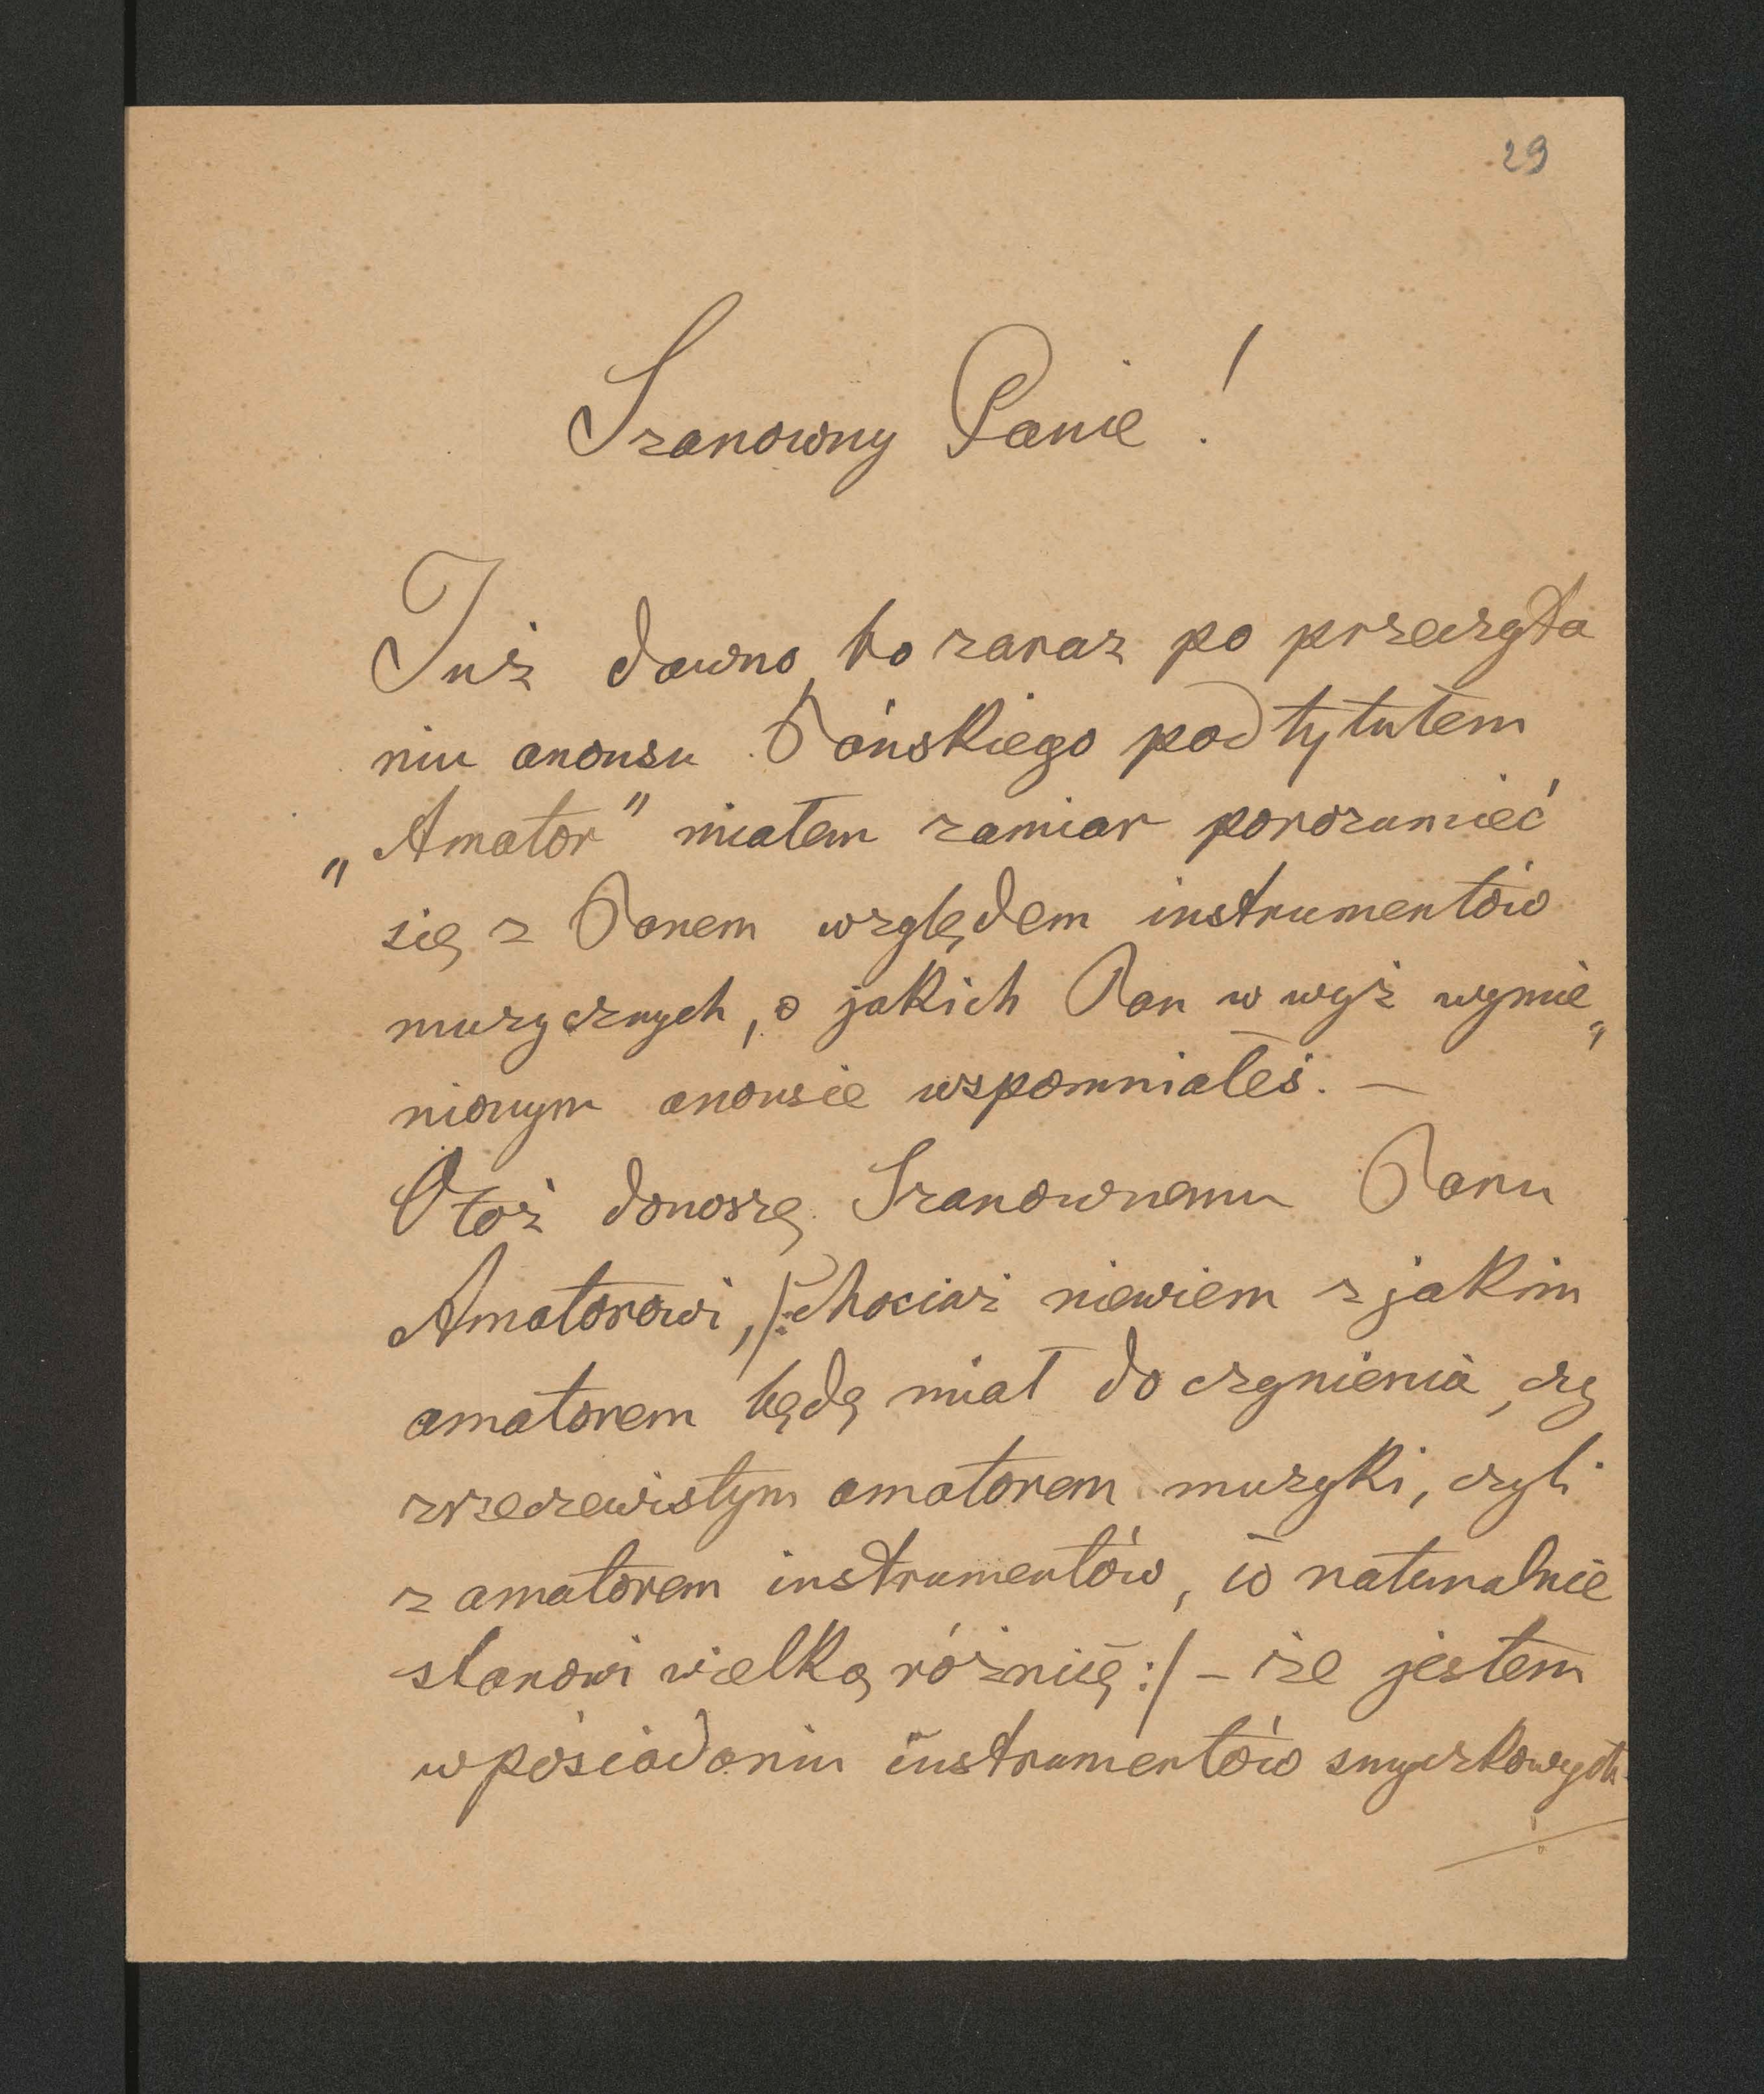 29
Szanowny Panie!
Już dawno, bo zaraz po przeczyta
niu anonsu Pańskiego pod tytułem
„Amator" miałem zamiar porozumieć
się z Panem względem instrumentów
muzycznych, o jakich Pan w wyż wymie„
nionym anonsie wspomniałeś. —
Otoż donoszę Szanownemu Panu
Amatorowi, /:chociaż niewiem z jakim
amatorem będę miał do czynienia, czy
zrzeczewistym amatorem muzyki, czyli
z amatorem instrumentów, co naturalnie
stanowi wielką róźnicę:/ – iże jestem
w posiadaniu instrumentów smyczkowych